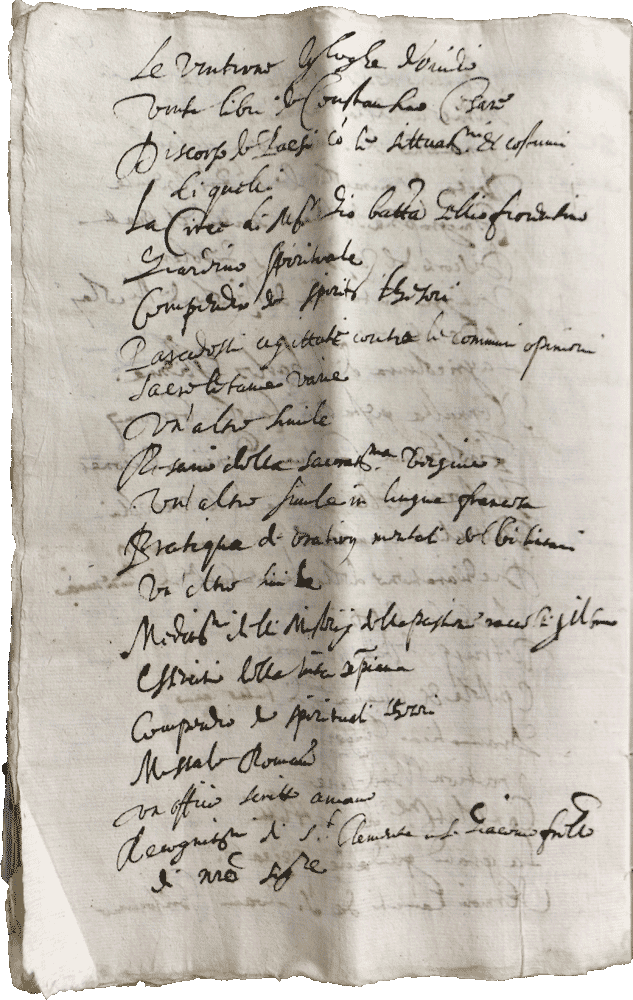 Le ventinove Egloghe d'Ovidio
Venti libri di Constantino Cesare
Discorso de Paesi cō le situat.ni et costumi
di queli
La Circe di Ms. Gio batta Gellio fiorentino
Giardino spirituale
Compendio de spiriti thesori
Paradossi contra le communi opinioni
Sacre letanie varie
Un'altro simile
Rosario della sacrat.ma Vergine
Un'altro simile in lingua francesa
Pratiqua di oration mentali del Bilitani
Un'altro simile
Medit.ni delli Misterij della passione
Essercitii della vita
Compendio de spirituali thesori
Messale Romano
un officio scritto amano
Recognit.ni di S.t Clemente a S. Giacomo frēllo
di nrō sig.re